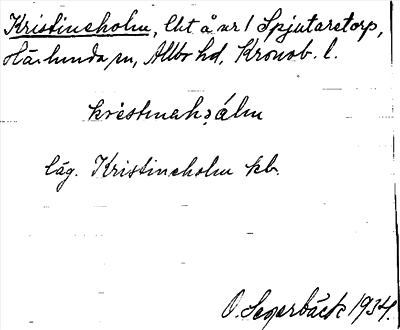 Kristineholm, lht å nr 1 Spjutaretorp,
Härlunda sn, Allbo hd, Kronob. l.
kristinahɔ́lm
läg. Kristineholm kb.
O. Segerbäck 1934.